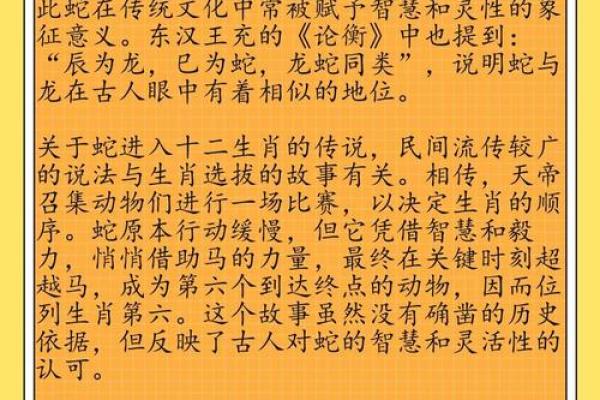 此蛇在传统文化中常被赋予智慧和灵性的象
征意义。东汉王充的《论衡》中也提到：
“辰为龙，巳为蛇，龙蛇同类”，说明蛇与
龙在古人眼中有着相似的地位。
关于蛇进入十二生肖的传说，民间流传较广
的说法与生肖选拔的故事有关。相传，天帝
召集动物们进行一场比赛，以决定生肖的顺
序。蛇原本行动缓慢，但它凭借智慧和毅
力，悄悄借助马的力量，最终在关键时刻超
越马，成为第六个到达终点的动物，因而位
列生肖第六。这个故事虽然没有确凿的历史
依据，但反映了古人对蛇的智慧和灵活性的
认可。